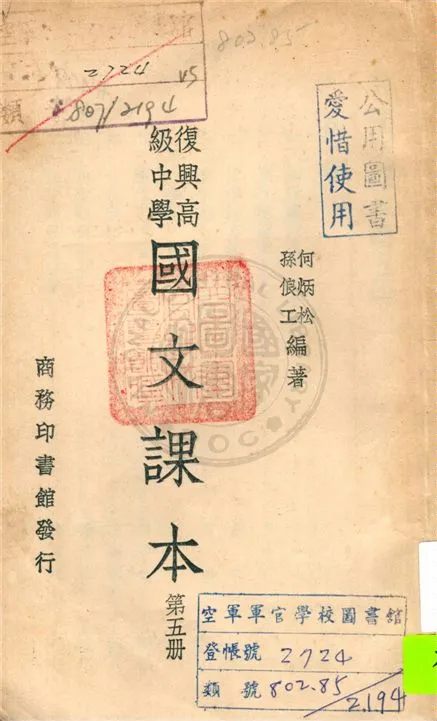 803.85
館
2724
類 807/2194
公用圖書
愛惜使用
復興高
級中學
國文課本
第五册
何炳松
孫俍工
編著
商務印書館發行
空軍軍官學校圖書館
登帳號 2724
類 號 802.85
2.194